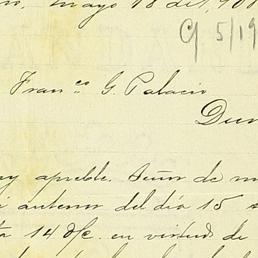 mayo 18 de 1,90
G 5/19
Fran.co G. Palacio
Du
apreble. Señor de m
anterior del día 15
14 d/c. en virtud de